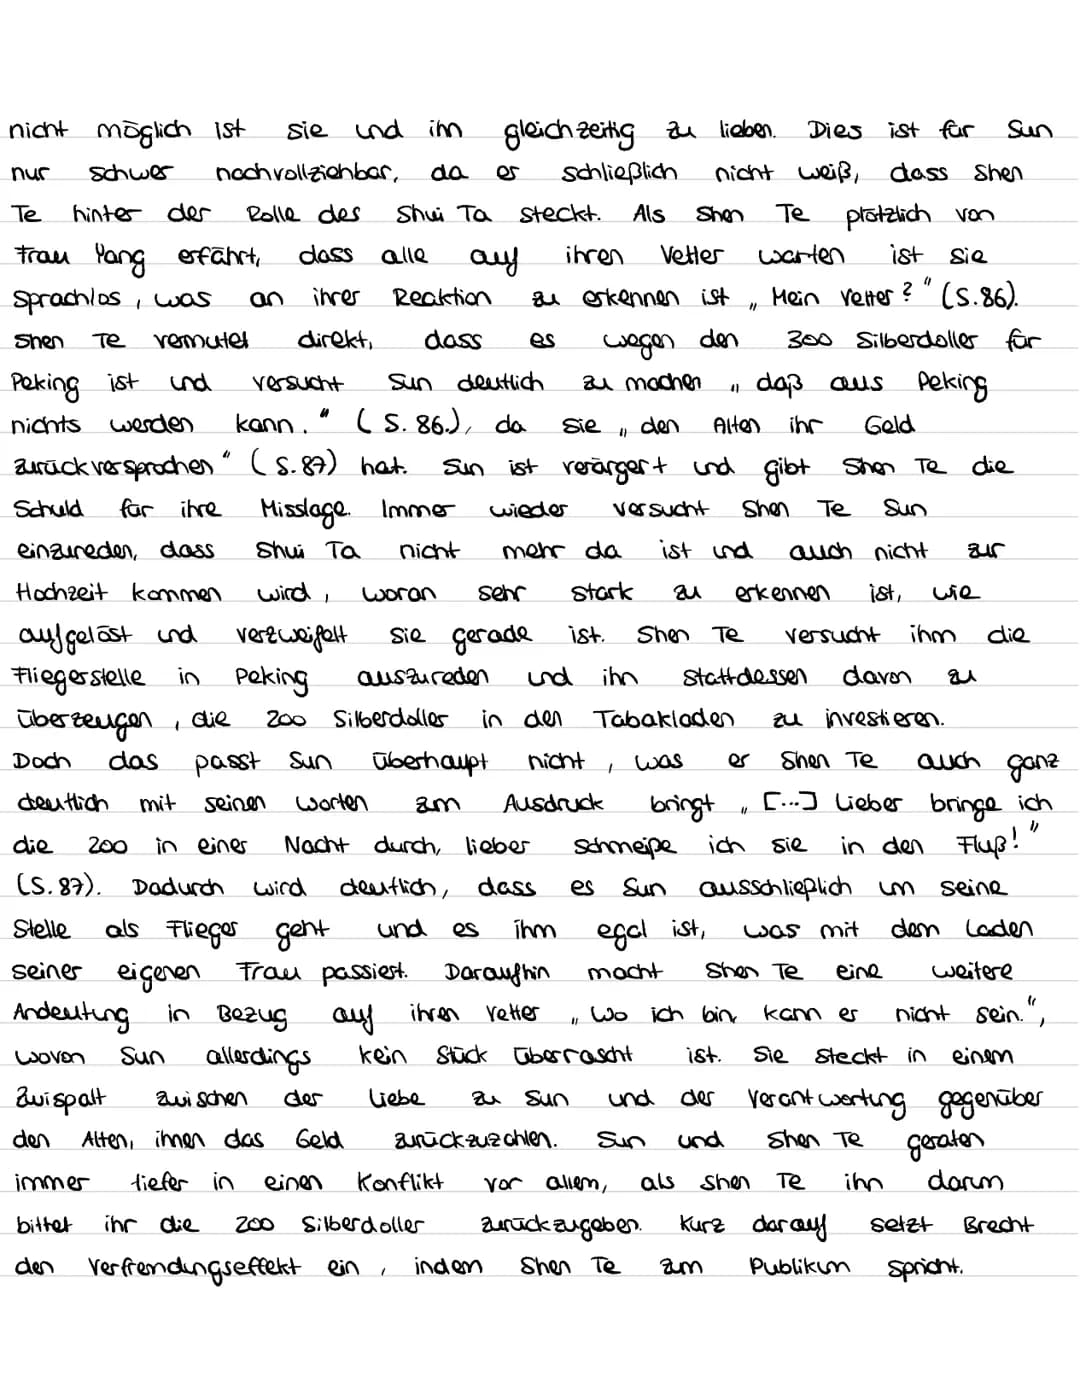 nicht möglich ist sie und ihn gleichzeitig zu lieben. Dies ist für Sun
nur schwer nachvollziehbar, da er schließlich nicht weiß, dass Shen
Te hinter der Rolle des Shui Ta steckt. Als Shen Te plötzlich von
Frau Yang erfährt, dass alle auf ihren Vetter warten ist sie
sprachlos, was an ihrer Reaktion zu erkennen ist „Mein Vetter?" (S.86).
Shen Te vermutet direkt, dass es wegen den 300 Silberdoller für
Peking ist und versucht Sun deutlich zu machen „daß aus Peking
nichts werden kann." (S. 86.), da sie „den Alten ihr Geld
zurückversprochen" (S.87) hat. Sun ist verärgert und gibt Shen Te die
Schuld für ihre Misslage. Immer wieder versucht Shen Te Sun
einzureden, dass Shui Ta nicht mehr da ist und auch nicht zur
Hochzeit kommen wird, woran sehr stark zu erkennen ist, wie
aufgelöst und verzweifelt sie gerade ist. Shen Te versucht ihm die
Fliegerstelle in Peking auszureden und ihn stattdessen davon zu
überzeugen, die 200 Silberdoller in den Tabakladen zu investieren.
Doch das passt Sun überhaupt nicht, was er Shen Te auch ganz
deutlich mit seinen Worten zum Ausdruck bringt „[...] Lieber bringe ich
die 200 in einer Nacht durch, lieber schmeiße ich sie in den Fluß!"
(S.87). Dadurch wird deutlich, dass es Sun ausschließlich um seine
Stelle als Flieger geht und es ihm egal ist, was mit dem Laden
seiner eigenen Frau passiert. Daraufhin macht Shen Te eine weitere
Andeutung in Bezug auf ihren Vetter „Wo ich bin, kann er nicht sein.",
wovon Sun allerdings kein Stück überrascht ist. Sie steckt in einem
Zwispalt zwischen der Liebe zu Sun und der Verantwortung gegenüber
den Alten, ihnen das Geld zurückzuzahlen. Sun und Shen Te geraten
immer tiefer in einen Konflikt vor allem, als Shen Te ihn darum
bittet ihr die 200 Silberdoller zurückzugeben. Kurz darauf setzt Brecht
den Verfremdungseffekt ein, indem Shen Te zum Publikum spricht.